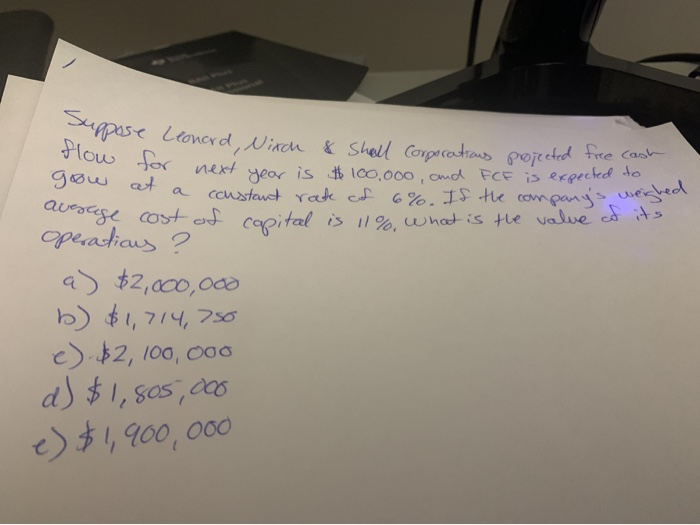 Suppose Leonard, Nixon & Shell Corporations projected free cash
flow for next year is $100,000, and FCF is expected to
grow at a constant rate of 6%. If the company's weighed
average cost of capital is 11%, what is the value of its
operations?
a) $2,000,000
b) $1,714,750
c) $2,100,000
d) $1,805,000
e) $1,900,000